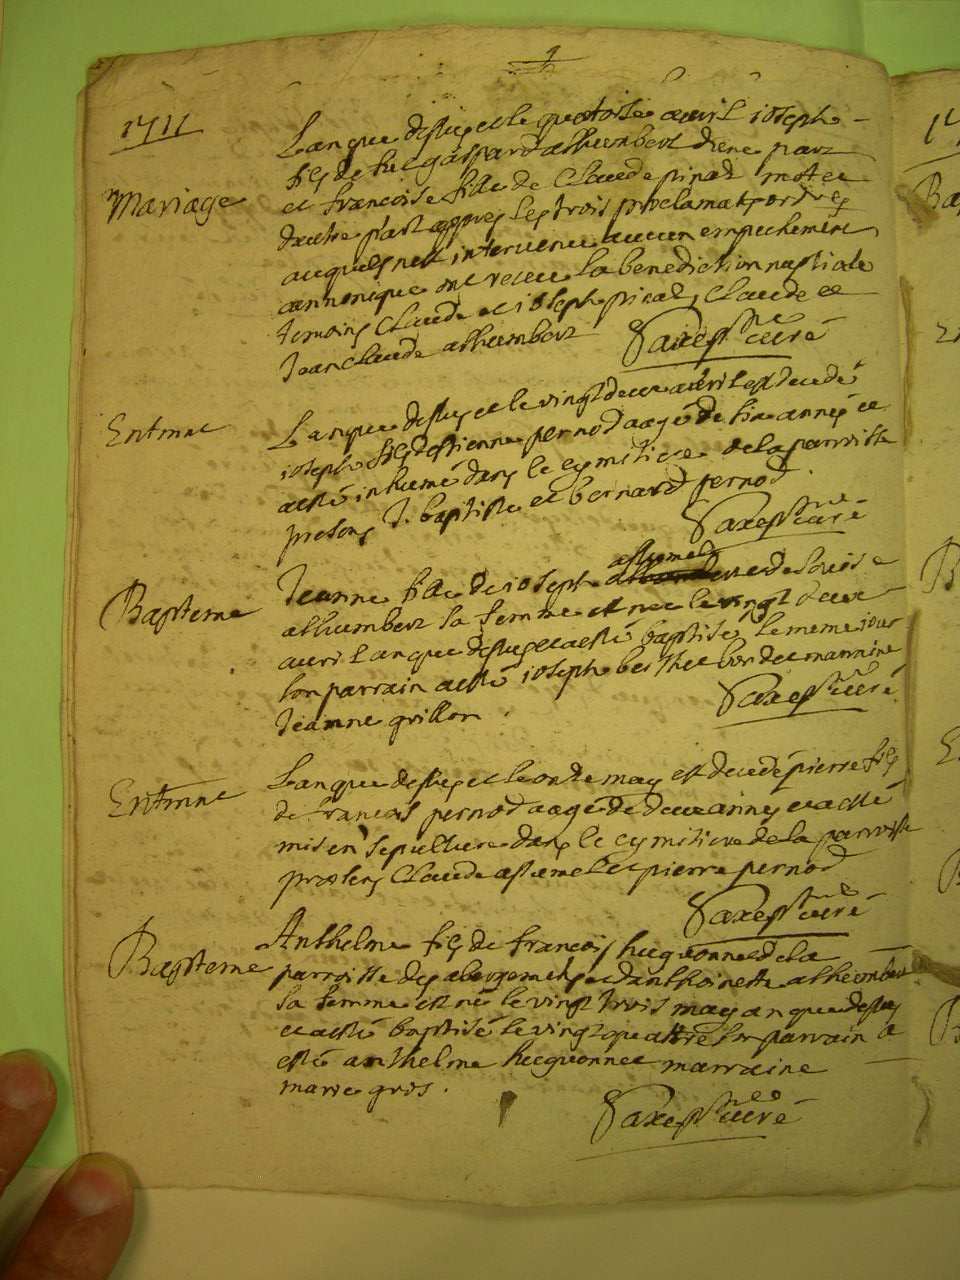 1711
Mariage
L'an que dessus et le quatorse avril ioseph
fils de feu gaspard alhumbert d'une part
et francoise fille de Claude pinat
d'autre part apres les trois proclamat
auquels nest intervenu aucun empechement
cannonique ont receu la benediction nuptiale
temoins Claude et ioseph pinat, Claude et
Jean Claude alhumbert
curé
Enterrme
L'an que dessus et le vingt deux avril est decedé
ioseph fils d'estienne pernod aagé de six années et
a esté inhumé dans le cymitiere de la parroisse
presens J. baptiste et bernard pernod
curé
Bapteme
Jeanne fille de ioseph et de Louise
alhumbert sa femme est née le vingt deux
avril an que dessus et a esté baptisée le meme iour
son parrain a esté ioseph berthet marrine
Jeanne grillon.
curé
Enterrme
L'an que dessus et le onze may est decedé pierre fils
de francois pernod aagé de deux annes et a esté
mis en sepulture dans le cymitiere de la parroisse
presens Claude et pierre pernod
curé
Bapteme
Anthelme fils de francois hugonnet de la
parroisse des abergemens et d'anthoinette alhumbert
sa femme est né le vingt trois may an que dessus
et a esté baptisé le vingt quattre son parrain a
esté anthelme hugonnet marraine
marie gros.
curé